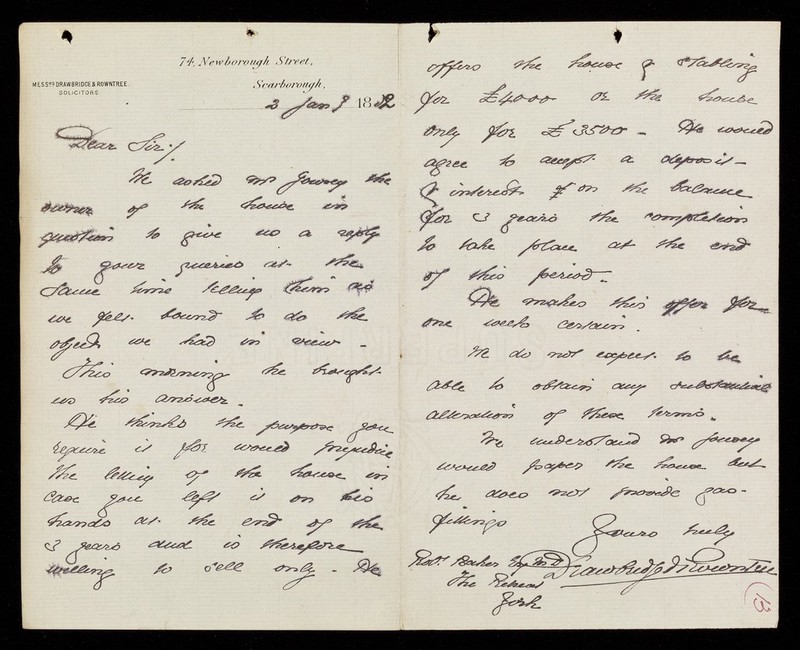 74, Newborough Street,
MESSRS DRAWBRIDGE & ROWNTREE.
SOLICITORS
Scarborough,
2 Jany 1882
Dear Sir/
We asked Mr Jowsey the
owner of the house in
question to give us a reply
to your queries at the
same time telling him as
we felt bound to do the
object we had in view -
This morning he brought
us his answer.
He thinks the purpose you
require it for would prejudice
the letting of the house in
case you left it on his
hands at the end of the
3 years and is therefore
willing to sell only - He
offers the house & stabling
for £4000 or the house
only for £3500 - He would
agree to accept a deposit -
& interest on the balance
for 3 years the completion
to take place at the end
of this period -
He makes this offer for
one week certain.
We do not expect to be
able to obtain any substantial
alteration of these terms.
We understand Mr Jowsey
would paper the house but
he does not provide gas-
fittings
Yours truly
Drawbridge & Rowntree
Robt Baker Esq M.D
The Retreat
York
13